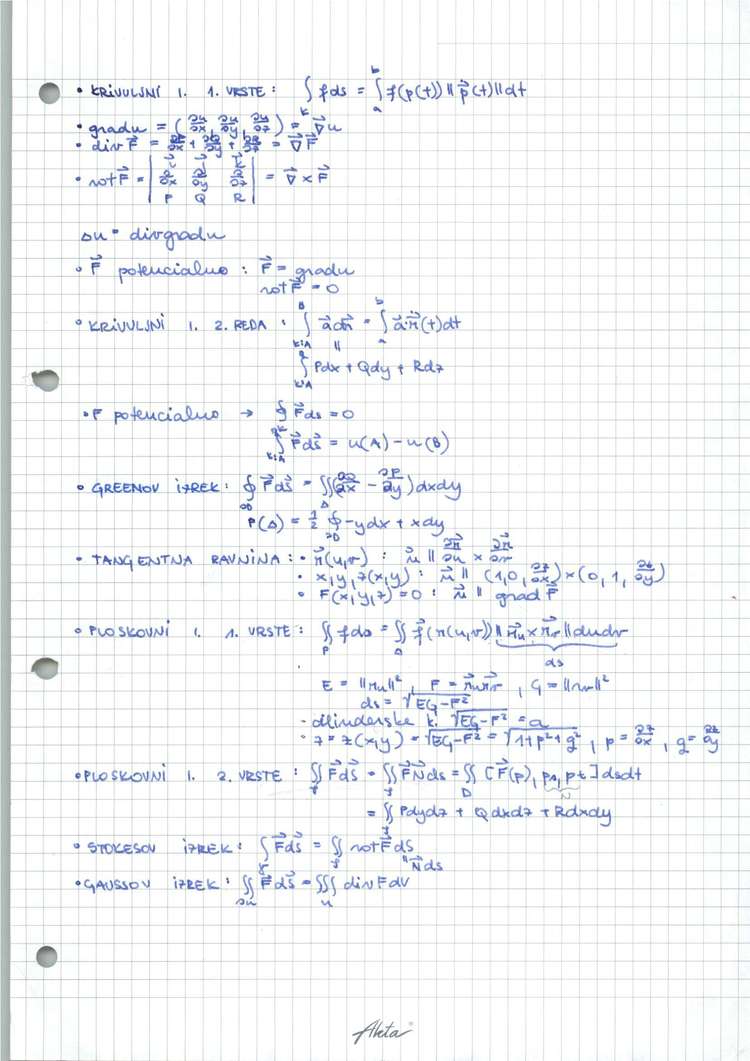 • KRIVULJNI I. 1. VRSTE : ∫_K f ds = ∫_a^b f(p(t)) ‖p⃗(t)‖dt
• grad u = (∂u/∂x, ∂u/∂y, ∂u/∂z) = ∇⃗u
• div F⃗ = ∂P/∂x + ∂Q/∂y + ∂R/∂z = ∇⃗F⃗
• rot F⃗ = | i⃗ j⃗ k⃗ ; ∂/∂x ∂/∂y ∂/∂z ; P Q R | = ∇⃗ × F⃗
Δu = div grad u
• F⃗ potencialno : F⃗ = grad u
rot F⃗ = 0
• KRIVULJNI I. 2. REDA : ∫_{K:A}^B a⃗ dr⃗ = ∫_a^b a⃗ r⃗(t)dt
‖
∫_{K:A}^B Pdx + Qdy + Rdz
• F potencialno → ∮ F⃗ds = 0
∫_{K:A}^{B} F⃗ds⃗ = u(A) - u(B)
• GREENOV IZREK : ∮_{∂D} F⃗ds⃗ = ∬_Δ (∂Q/∂x - ∂P/∂y) dxdy
P(Δ) = 1/2 ∮_{∂D} -ydx + xdy
• TANGENTNA RAVNINA : • r⃗(u,v) : n⃗ ‖ ∂r⃗/∂u × ∂r⃗/∂v
• x, y, z(x,y) : n⃗ ‖ (1, 0, ∂z/∂x) × (0, 1, ∂z/∂y)
• F(x,y,z) = 0 : n⃗ ‖ grad F⃗
• PLOSKOVNI I. 1. VRSTE : ∬_P f ds = ∬_Δ f⃗(r(u,v)) ‖r⃗u × r⃗v‖dudv
ds
E = ‖ru‖², F = r⃗u r⃗v, G = ‖rv‖²
ds = √(EG-F²)
• cilinderske k. √(EG-F²) = a
• z = z(x,y) = √(EG-F²) = √(1+p²+q²), p = ∂z/∂x, q = ∂z/∂y
• PLOSKOVNI I. 2. VRSTE : ∬ F⃗dS⃗ = ∬ F⃗N⃗ds = ∬_D [F⃗(p), ps, pt] dsdt
N
= ∬ Pdydz + Qdxdz + Rdxdy
• STOKESOV IZREK : ∫_γ F⃗ds⃗ = ∬ rot F⃗ ds
" N⃗ds
• GAUSSOV IZREK : ∬_{∂U} F⃗dS⃗ = ∭_U div F dV
Akta